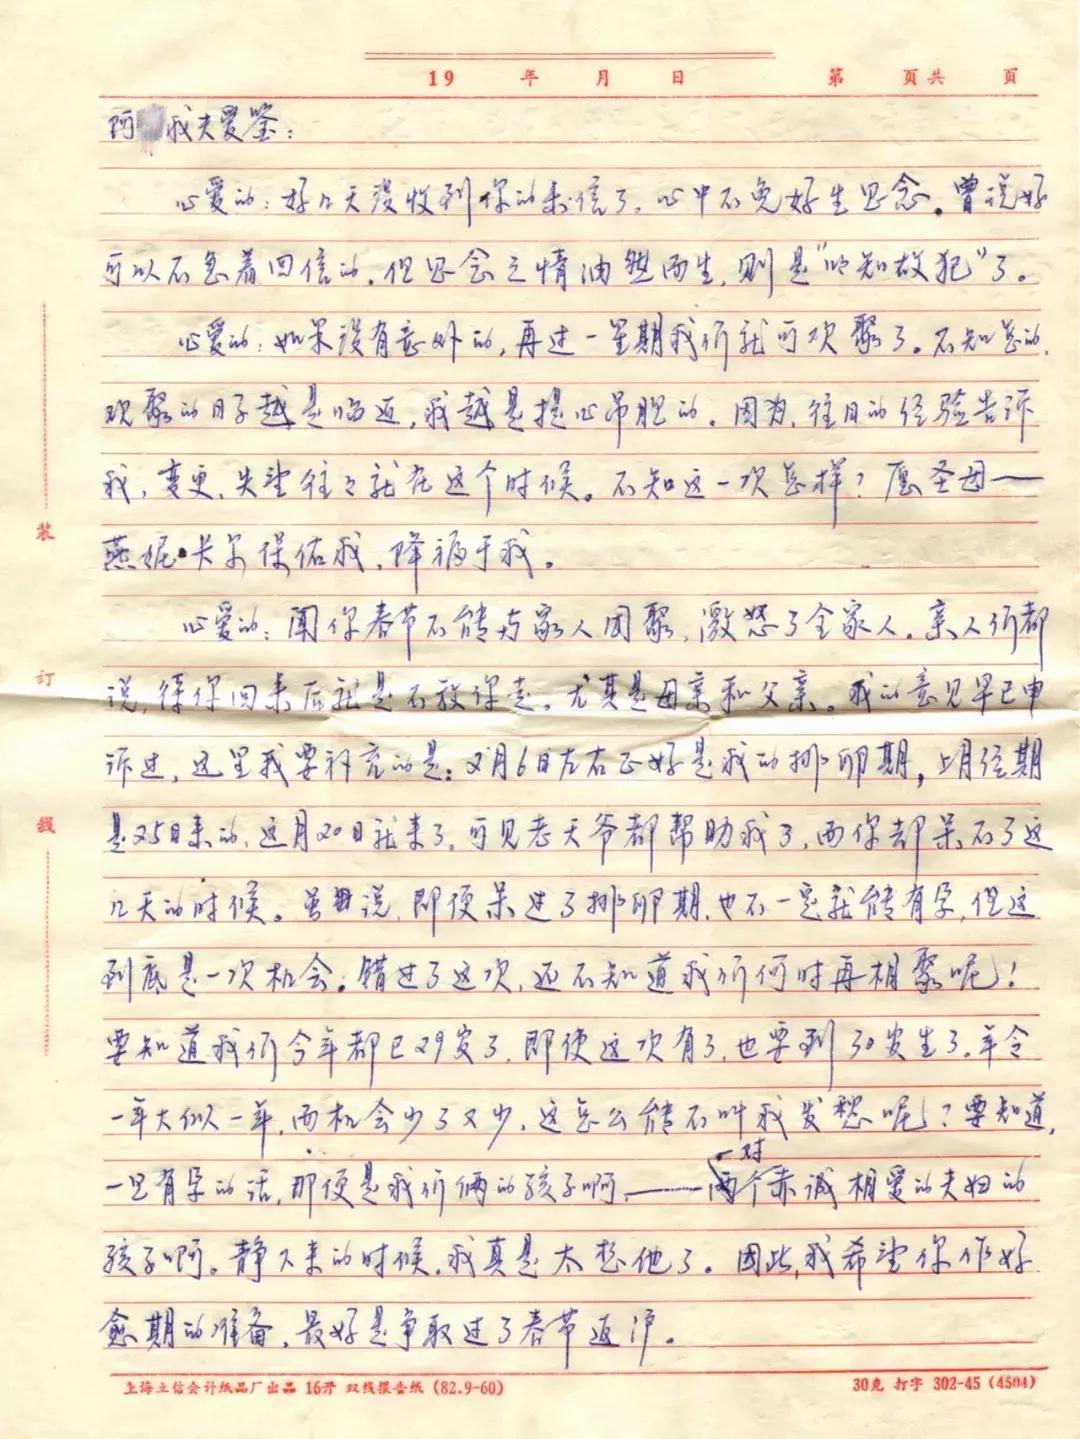 19 年 月 日 第 页共 页
阿 我夫爱鉴：
心爱的：好几天没收到你的来信了，心中不免好生思念。曾说好
可以不急着回信的，但思念之情油然而生，则是“明知故犯”了。
心爱的：如果没有意外的，再过一星期我们就可欢聚了。不知怎的，
欢聚的日子越是临近，我越是提心吊胆的。因为，往日的经验告诉
我，变更、失望往々就在这个时候。不知这一次怎样？愿圣母——
燕妮·卡尔保佑我，降福于我。
心爱的：闻你春节不能与家人团聚，激怒了全家人。亲人们都
说，待你回来后就是不放你走。尤其是母亲和父亲。我的意见早已申
诉过，这里我要补充的是：2月6日左右正好是我的排卵期，上月经期
是25日来的，这月20日就来了，可见老天爷都帮助我了，而你却呆不了这
几天的时候。虽说，即便呆过了排卵期，也不一定就能有孕，但这
到底是一次机会。错过了这次，还不知道我们何时再相聚呢！
要知道我们今年都已29岁了，即使这次有了，也要到30岁生了。年令
一年大似一年，而机会少了又少，这怎么能不叫我发愁呢？要知道，
一旦有孕的话，那便是我们俩的孩子啊，——一对赤诚相爱的夫妇的
孩子啊。静下来的时候，我真是太想他了。因此，我希望你作好
愈期的准备，最好是争取过了春节返沪。
装
订
线
上海立信会计纸品厂出品 16开 双线报告纸 (82.9-60)
30克 打字 302-45 (4504)